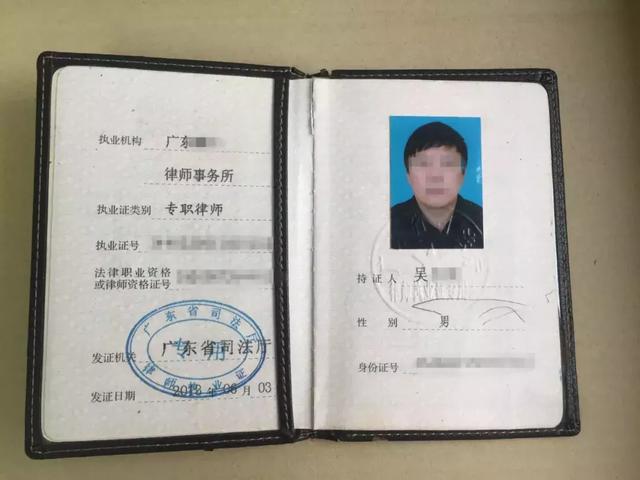 执业机构 广东
律师事务所
执业证类别 专职律师
执业证号
法律职业资格
或律师资格证号
发证机关 广东省司法厅
发证日期 2018年06月03
广东省司法厅
专用
律师执业证
持证人 吴
性别 男
身份证号